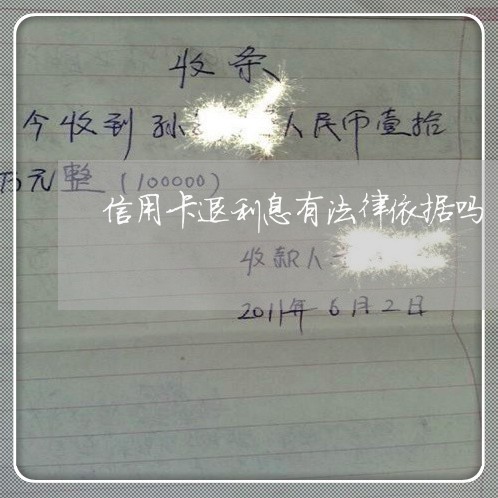 收条
今收到孙 人民币壹拾
万元整（100000）
信用卡退利息有法律依据吗
收款人
2011年6月2日